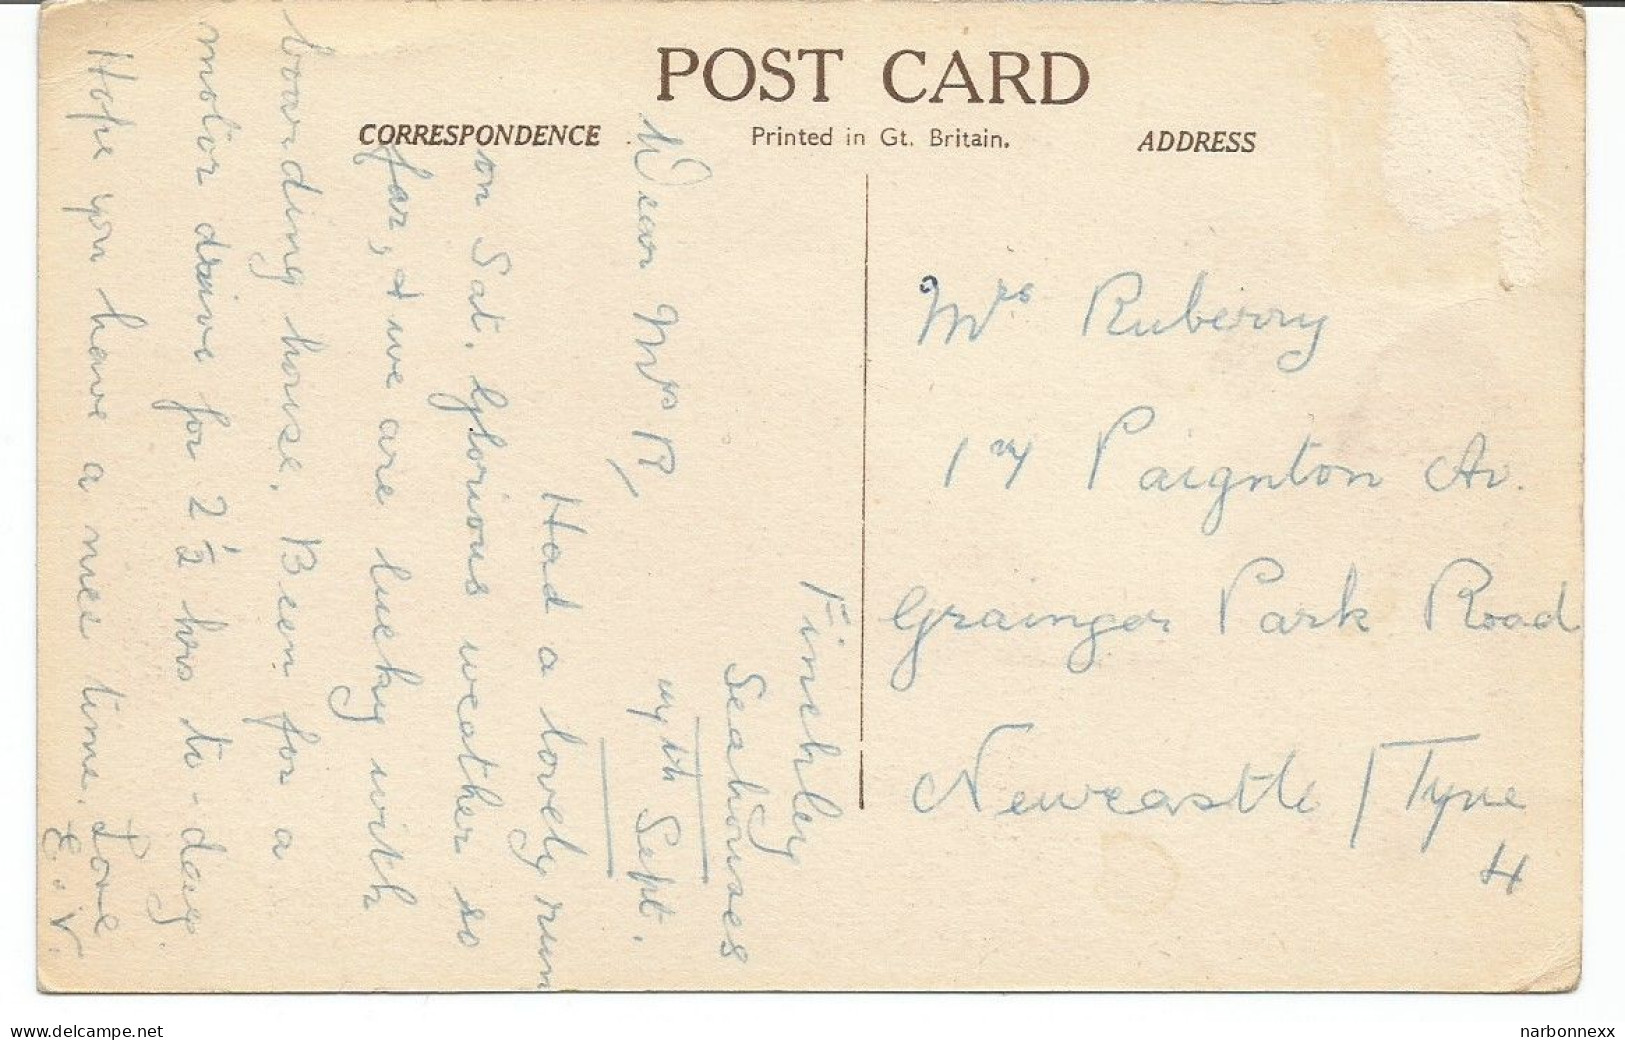 POST CARD
CORRESPONDENCE
Printed in Gt. Britain.
ADDRESS
Finchley
Seahouses
Sept.
Dear Mrs R,
Had a lovely run
on Sat. Glorious weather so
far, & we are lucky with
boarding house. Been for a
motor drive for 2½ hrs to-day.
Hope you have a nice time. Love
E. V.
Mrs Ruberry
Paignton Av.
Grainger Park Road
Newcastle / Tyne
4
www.delcampe.net
narbonnexx